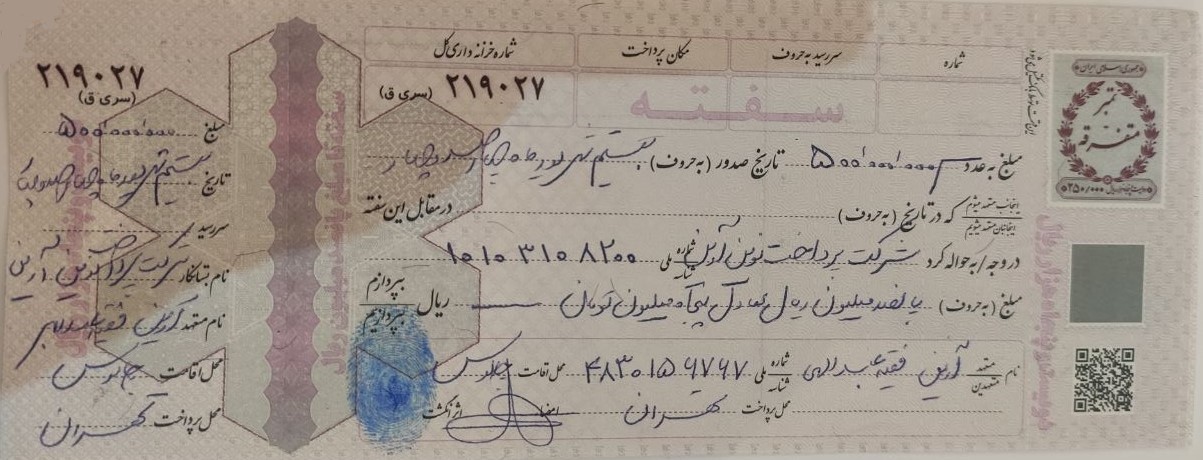 شماره
سررسید به حروف
مکان پرداخت
شماره خزانه داری کل
سفته
۲۱۹۰۲۷ (سری ق)
مبلغ به عدد ۵۰۰٬۰۰۰٬۰۰۰ تاریخ صدور (به حروف)
اینجانب متعهد میشوم
اینجانبان متعهد میشویم
که در تاریخ (به حروف) در مقابل این سفته
در وجه / به حواله کرد شرکت پرداخت نوین آرین شماره شناسه ملی ۱۰۱۰۳۱۰۸۲۰۰
مبلغ (به حروف) پانصد میلیون ریال معادل پنجاه میلیون تومان ریال
بپردازم
بپردازیم
نام متعهد متعهدین آرین فقیه عبدالهی شماره شناسه ملی ۴۸۳۰۱۵۶۷۶۷ محل اقامت چالوس
محل پرداخت تهران امضا اثر انگشت
۲۱۹۰۲۷
(سری ق)
مبلغ ۵۰۰٬۰۰۰٬۰۰۰
تاریخ
سررسید
نام بستانکار شرکت پرداخت نوین آرین
نام متعهد آرین فقیه عبدالهی
محل اقامت چالوس
محل پرداخت تهران
جمهوری اسلامی ایران
تمبر
متفرقه
۲۵۰/۰۰۰ ریال
دویست و پنجاه هزار ریال
سفته تا مبلغ پانصد میلیون ریال